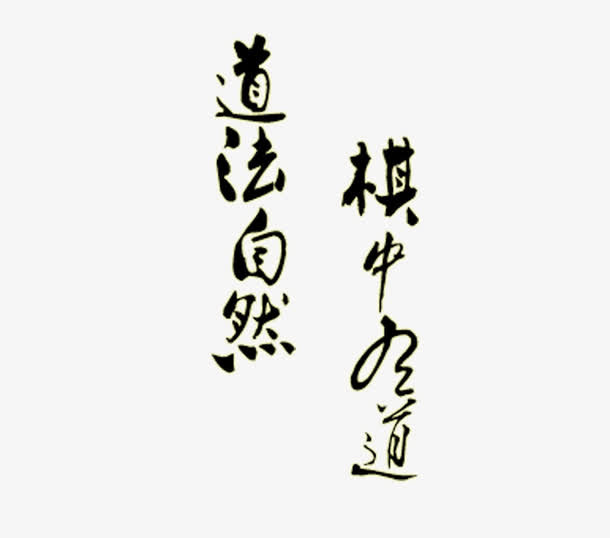 棋中有道
道法自然